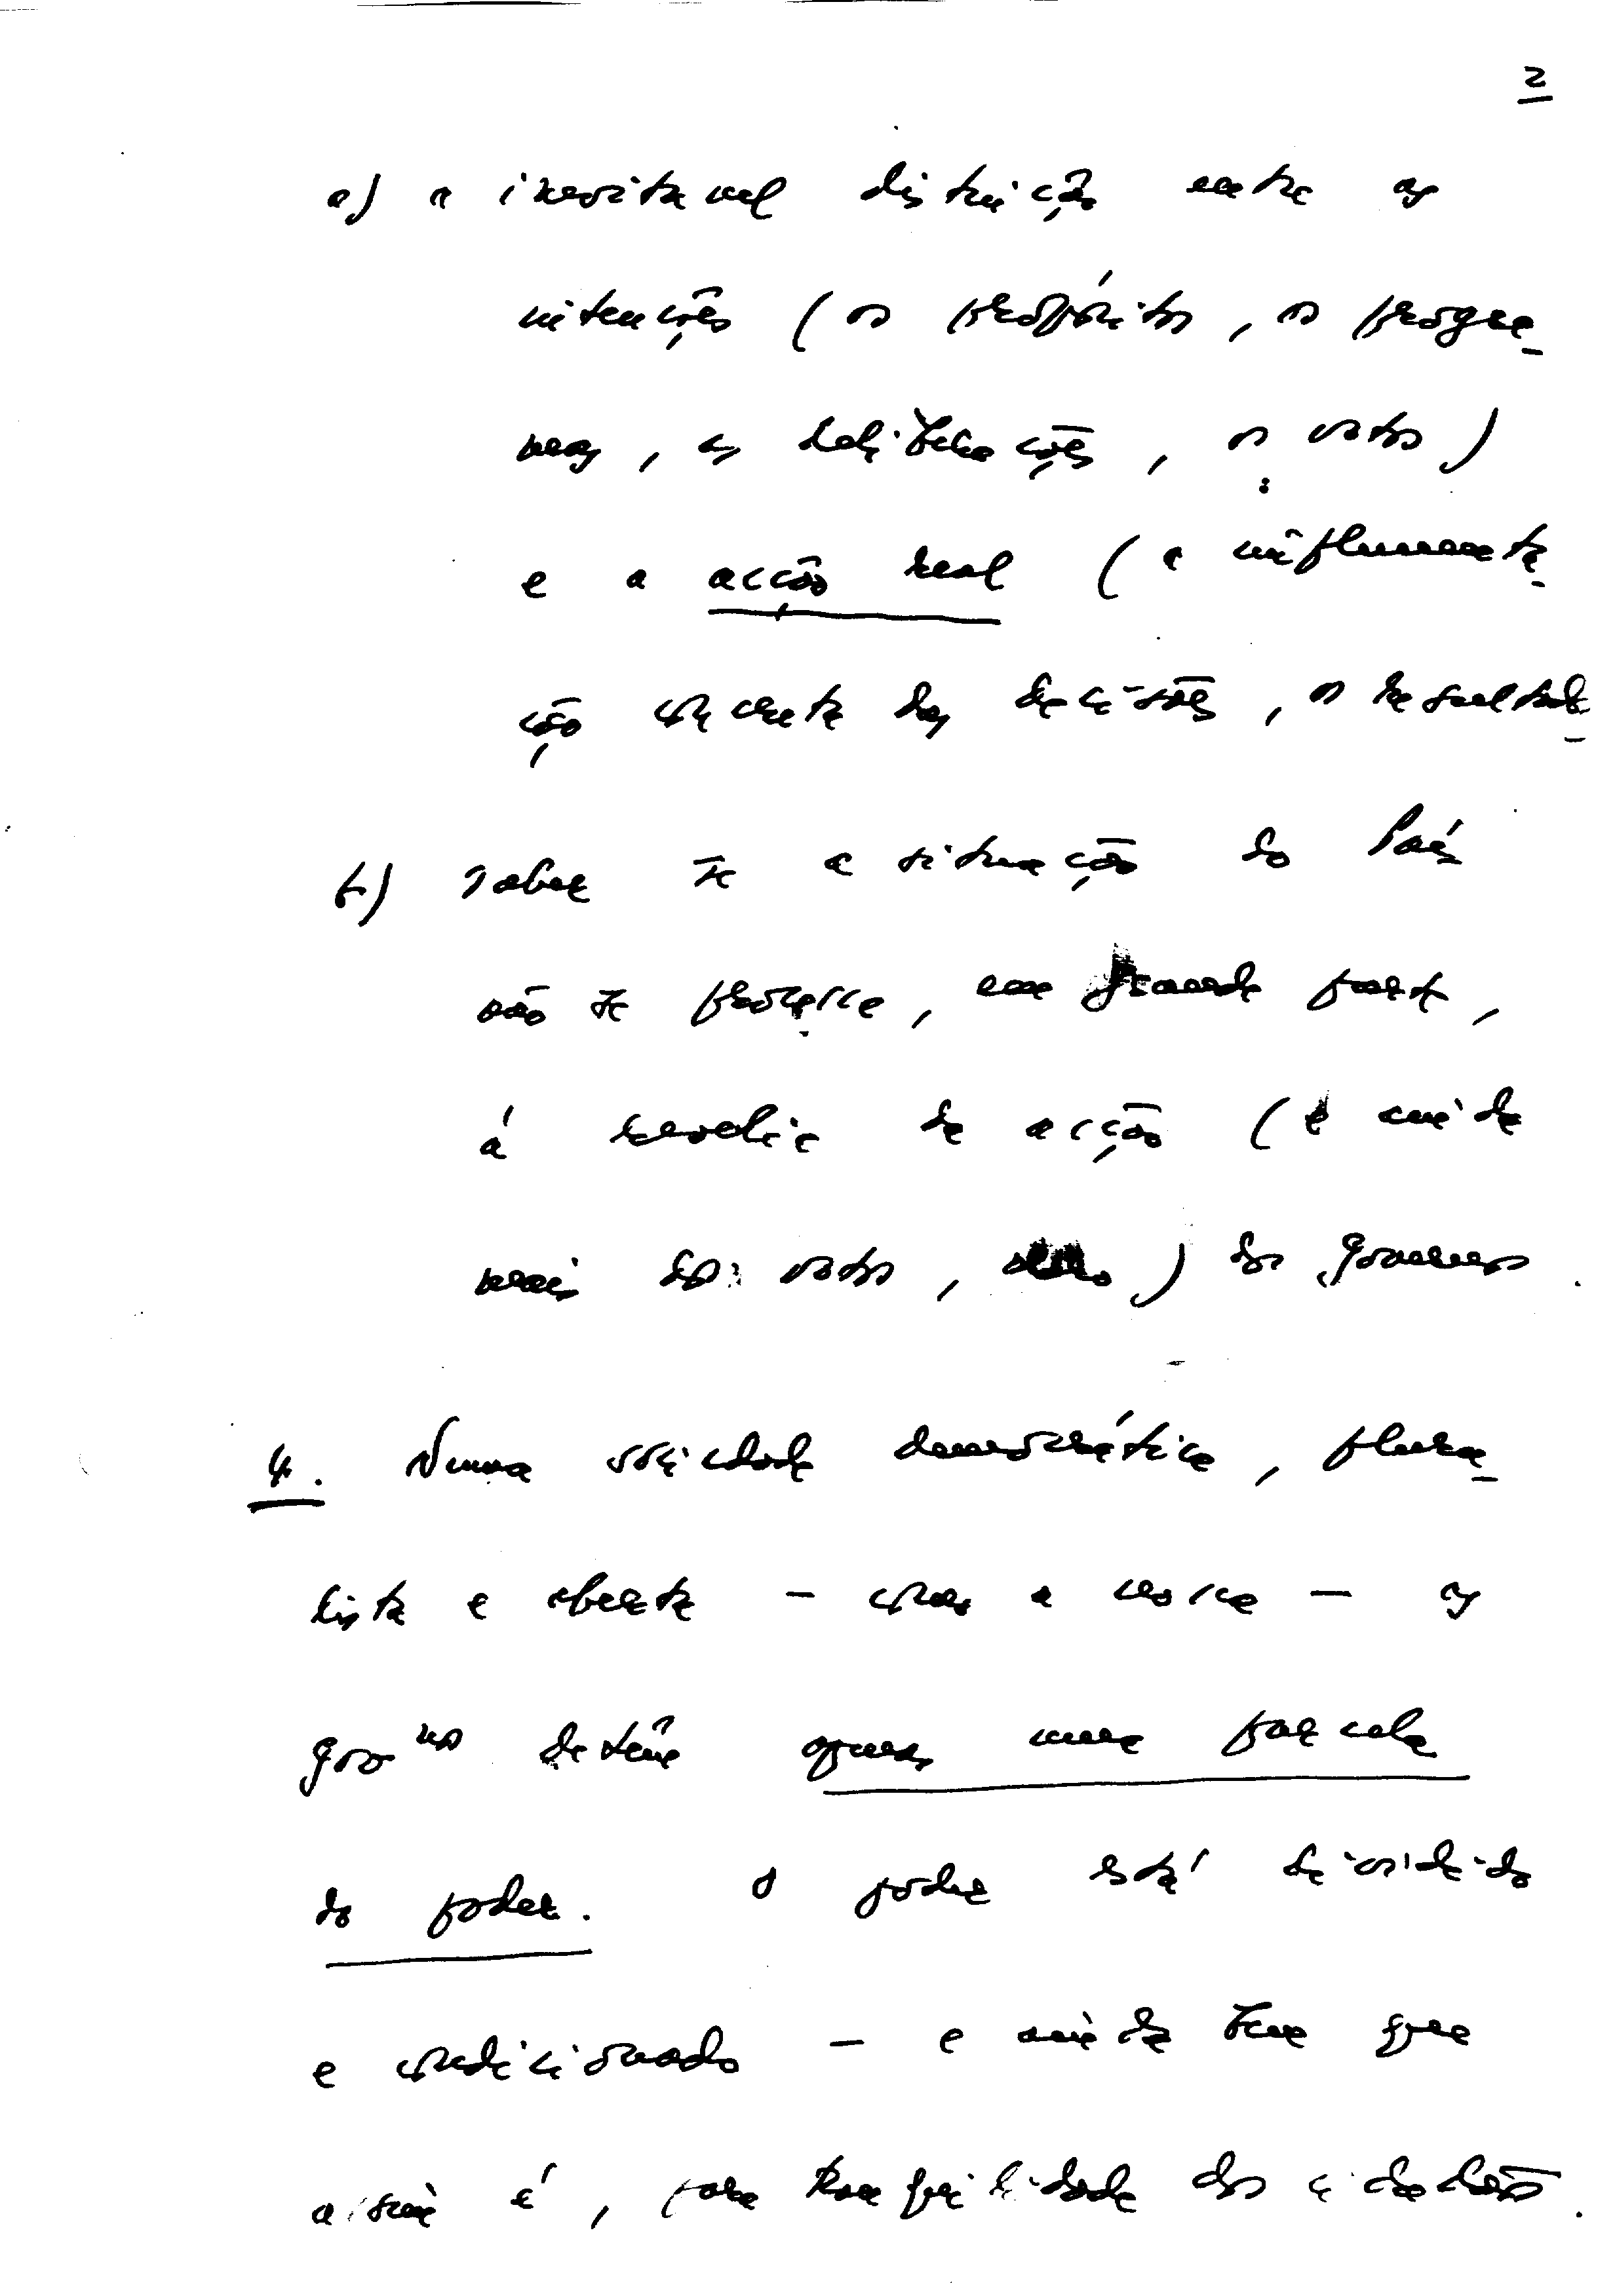 2
a) a inevitavel distinção entre as
intenções (os propósitos, os progra-
mas, as deliberações, os votos)
e a acção real (a implementa-
ção concreta das decisões, os resultad
b) saber se a situação do País
não se processa, em grande parte,
à revelia da acção (e ainda
mais dos votos, ) dos governos.
4. Numa sociedade democrática, plura-
lista e aberta - como a nossa - os
govnos detêm apenas uma parcela
do poder. O poder está dividido
e condicionado - e ainda bem que
assim é, para tranquilidade dos cidadãos.